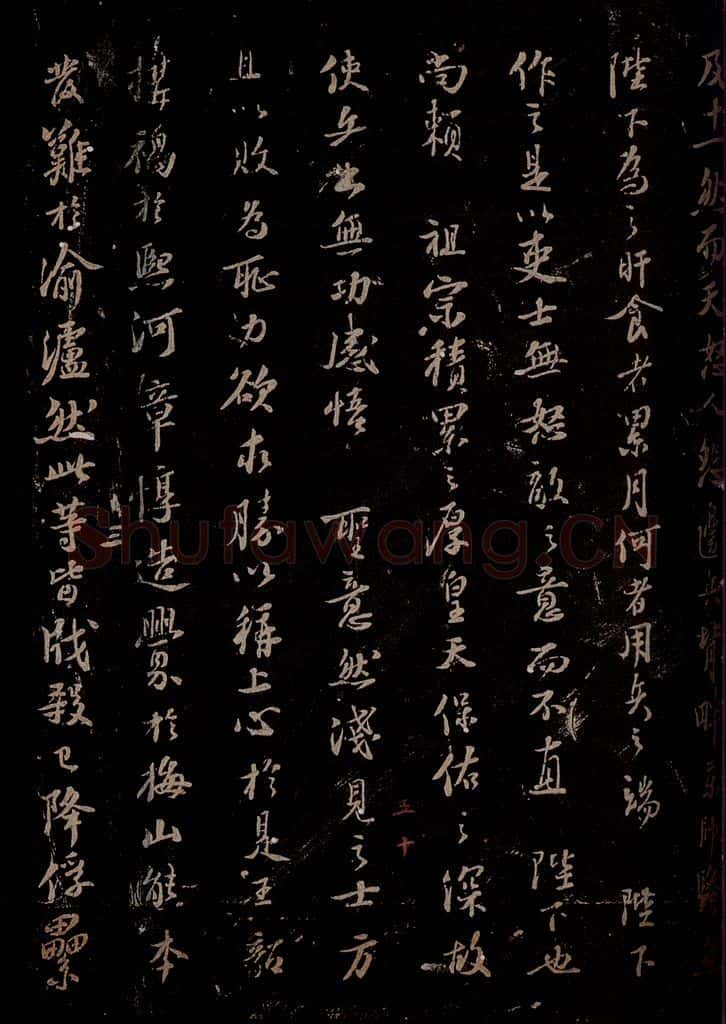 及十一然而天怒人怨邊兵背畔京師騷然
陛下為之旰食者累月何者用兵之端 陛下
作之是以吏士無怒敵之意而不直 陛下也
尚賴 祖宗積累之厚皇天保佑之深故
使兵出無功感悟 聖意然淺見之士方
且以敗為恥力欲求勝以稱上心於是王韶
搆禍於熙河章惇造釁於梅山熊本
發難於渝瀘然此等皆戕殺已降俘纍
五十
Shufawang.CN